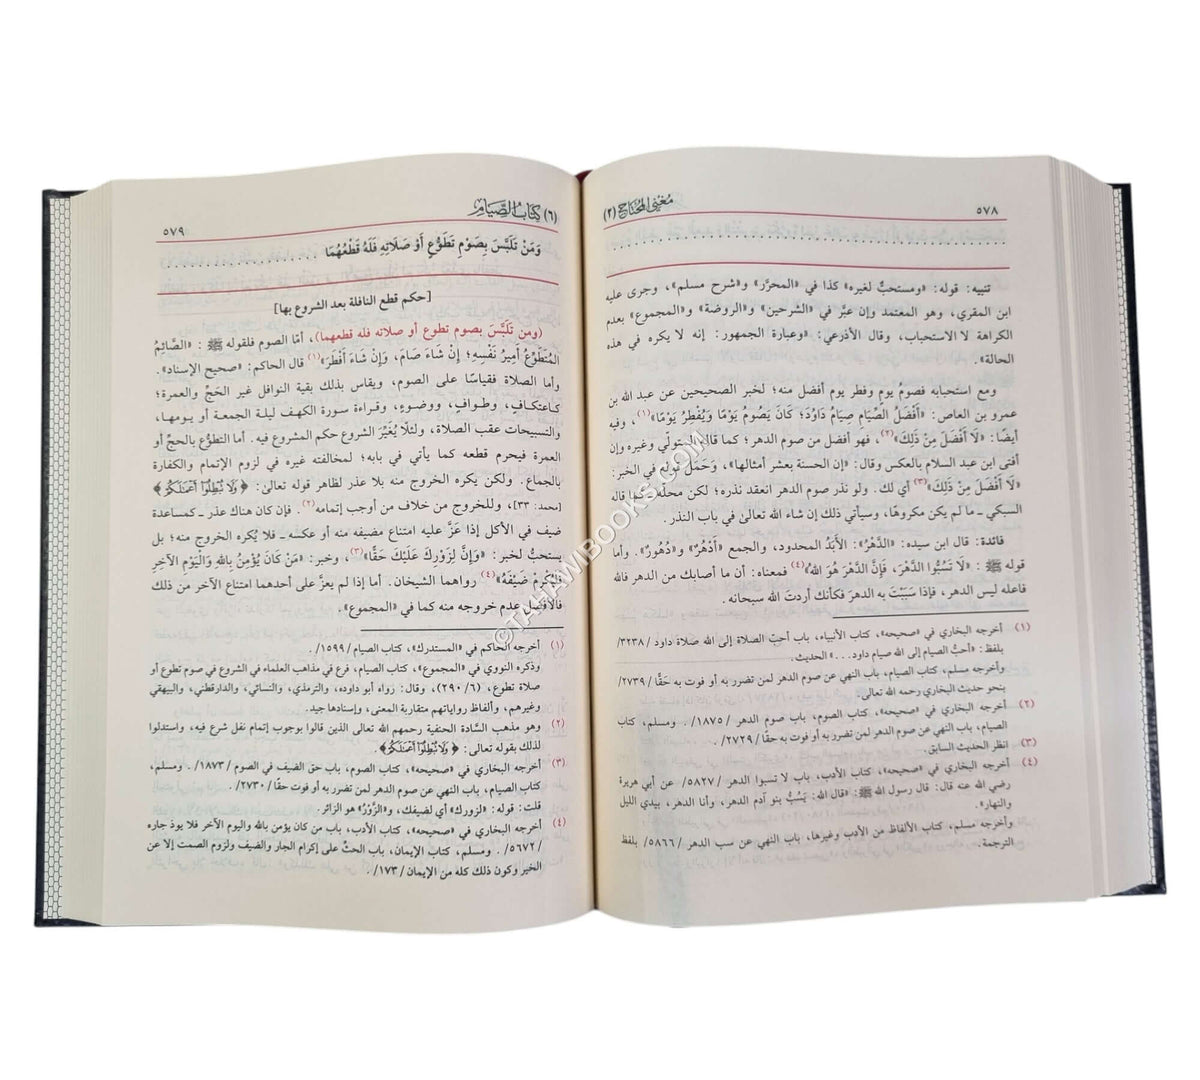 ٥٧٨
مغني المحتاج (٢)
تنبيه: قوله: «ومستحبٌّ لغيره» كذا في «المحرَّر» و«شرح مسلم»، وجرى عليه
ابن المقري، وهو المعتمد وإن عبَّر في «الشرحين» و«الروضة» و«المجموع» بعدم
الكراهة لا الاستحباب، وقال الأذرعي: «وعبارة الجمهور: إنه لا يكره في هذه
الحالة».
ومع استحبابه فصومُ يوم وفطر يوم أفضل منه؛ لخبر الصحيحين عن عبد الله بن
عمرو بن العاص: «أَفْضَلُ الصِّيَامِ صِيَامُ دَاوُدَ؛ كَانَ يَصُومُ يَوْمًا وَيُفْطِرُ يَوْمًا»(١)، وفيه
أيضًا: «لَا أَفْضَلَ مِنْ ذَلِكَ»(٢)، فهو أفضل من صوم الدهر؛ كما قاله المتولّي وغيره وإن
أفتى ابن عبد السلام بالعكس وقال: «إن الحسنة بعشر أمثالها»، وَحَمَلَ قولَه في الخبر:
«لَا أَفْضَلَ مِنْ ذَلِكَ»(٣) أي لك. ولو نذر صوم الدهر انعقد نذره؛ لكن محلّه ـ كما قاله
السبكي ـ ما لم يكن مكروهًا، وسيأتي ذلك إن شاء الله تعالى في باب النذر.
فائدة: قال ابن سيده: «الدَّهْرُ»: الأَبَدُ المحدود، والجمع «أَدْهُرٌ» و«دُهُورٌ». وأما
قوله ﷺ: «لَا تَسُبُّوا الدَّهْرَ، فَإِنَّ الدَّهْرَ هُوَ اللهُ»(٤) فمعناه: أن ما أصابك من الدهر فالله
فاعله ليس الدهر، فإذا سَبَبْتَ به الدهرَ فكأنك أردتَ الله سبحانه.
(١) أخرجه البخاري في «صحيحه»، كتاب الأنبياء، باب أحبّ الصلاة إلى الله صلاة داود /٣٢٣٨/
بلفظ: «أحبُّ الصيام إلى الله صيام داود...» الحديث.
وأخرجه مسلم، كتاب الصيام، باب النهي عن صوم الدهر لمن تضرر به أو فوت به حقًّا /٢٧٣٩/
بنحو حديث البخاري رحمه الله تعالى.
(٢) أخرجه البخاري في «صحيحه»، كتاب الصوم، باب صوم الدهر /١٨٧٥/. ومسلم، كتاب
الصيام، باب النهي عن صوم الدهر لمن تضرر به أو فوت به حقًّا /٢٧٢٩/.
(٣) انظر الحديث السابق.
(٤) أخرجه البخاري في «صحيحه»، كتاب الأدب، باب لا تسبوا الدهر /٥٨٢٧/ عن أبي هريرة
رضي الله عنه قال: قال رسول الله ﷺ: «قال الله: يَسُبُّ بنو آدم الدهر، وأنا الدهر، بيدي الليل
والنهار».
وأخرجه مسلم، كتاب الألفاظ من الأدب وغيرها، باب النهي عن سب الدهر /٥٨٦٦/ بلفظ
الترجمة.
(٦) كتاب الصيام
٥٧٩
وَمَنْ تَلَبَّسَ بِصَوْمِ تَطَوُّعٍ أَوْ صَلَاتِهِ فَلَهُ قَطْعُهُمَا
[حكم قطع النافلة بعد الشروع بها]
(ومن تَلَبَّسَ بصوم تطوع أو صلاته فله قطعهما)، أمّا الصوم فلقوله ﷺ: «الصَّائِمُ
المُتَطَوِّعُ أَمِيرُ نَفْسِهِ؛ إِنْ شَاءَ صَامَ، وَإِنْ شَاءَ أَفْطَرَ»(١) قال الحاكم: «صحيح الإسناد».
وأما الصلاة فقياسًا على الصوم، ويقاس بذلك بقية النوافل غير الحَجّ والعمرة؛
كاعتكافٍ، وطوافٍ، ووضوءٍ، وقراءة سورة الكهف ليلة الجمعة أو يومها،
والتسبيحات عقب الصلاة، ولئلّا يُغَيِّرَ الشروع حكم المشروع فيه. أما التطوُّع بالحجّ أو
العمرة فيحرم قطعه كما يأتي في بابه؛ لمخالفته غيره في لزوم الإتمام والكفارة
بالجماع. ولكن يكره الخروج منه بلا عذر لظاهر قوله تعالى: ﴿وَلَا تُبْطِلُوا أَعْمَالَكُمْ﴾
[محمد: ٣٣]، وللخروج من خلاف من أوجب إتمامه(٢). فإن كان هناك عذر ـ كمساعدة
ضيف في الأكل إذا عَزَّ عليه امتناع مضيفه منه أو عكسه ـ فلا يُكره الخروج منه؛ بل
يستحبُّ لخبر: «وَإِنَّ لِزَوْرِكَ عَلَيْكَ حَقًّا»(٣)، وخبر: «مَنْ كَانَ يُؤْمِنُ بِاللهِ وَالْيَوْمِ الآخِرِ
فَلْيُكْرِمْ ضَيْفَهُ»(٤) رواهما الشيخان. أما إذا لم يعزَّ على أحدهما امتناع الآخر من ذلك
فالأفضل عدم خروجه منه كما في «المجموع».
(١) أخرجه الحاكم في «المستدرك»، كتاب الصيام /١٥٩٩/.
وذكره النووي في «المجموع»، كتاب الصيام، فرع في مذاهب العلماء في الشروع في صوم تطوع أو
صلاة تطوع، (٦/٢٩٠)، وقال: رواه أبو داود، والترمذي، والنسائي، والدارقطني، والبيهقي
وغيرهم، وألفاظ رواياتهم متقاربة المعنى، وإسنادها جيد.
(٢) وهو مذهب السَّادة الحنفية رحمهم الله تعالى الذين قالوا بوجوب إتمام نفل شرع فيه، واستدلوا
لذلك بقوله تعالى: ﴿وَلَا تُبْطِلُوا أَعْمَالَكُمْ﴾.
(٣) أخرجه البخاري في «صحيحه»، كتاب الصوم، باب حق الضيف في الصوم /١٨٧٣/. ومسلم،
كتاب الصيام، باب النهي عن صوم الدهر لمن تضرر به أو فوت حقًّا /٢٧٣٠/.
قلت: قوله: «لزورك» أي لضيفك، و«الزَّوْرُ» هو الزائر.
(٤) أخرجه البخاري في «صحيحه»، كتاب الأدب، باب من كان يؤمن بالله واليوم الآخر فلا يوذ جاره
/٥٦٧٢/. ومسلم، كتاب الإيمان، باب الحثّ على إكرام الجار والضيف ولزوم الصمت إلا عن
الخير وكون ذلك كله من الإيمان /١٧٣/.
©TAHAWIBOOKS.COM